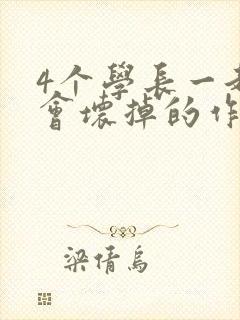 4个學長一起
會壞掉的作
梁倩烏